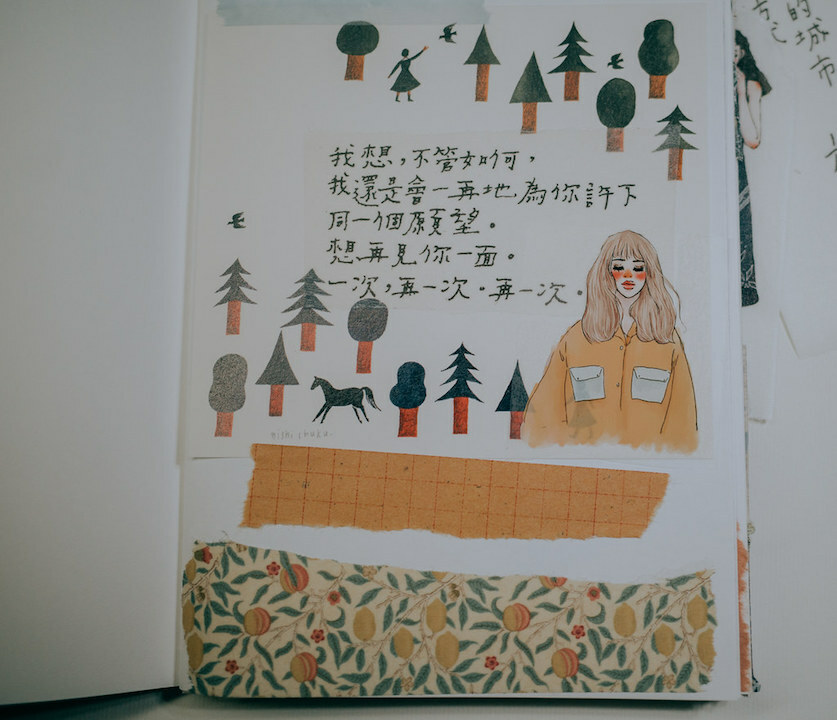 我想，不管如何，
我還是會一再地為你許下
同一個願望。
想再見你一面。
一次，再一次。再一次。
的城市